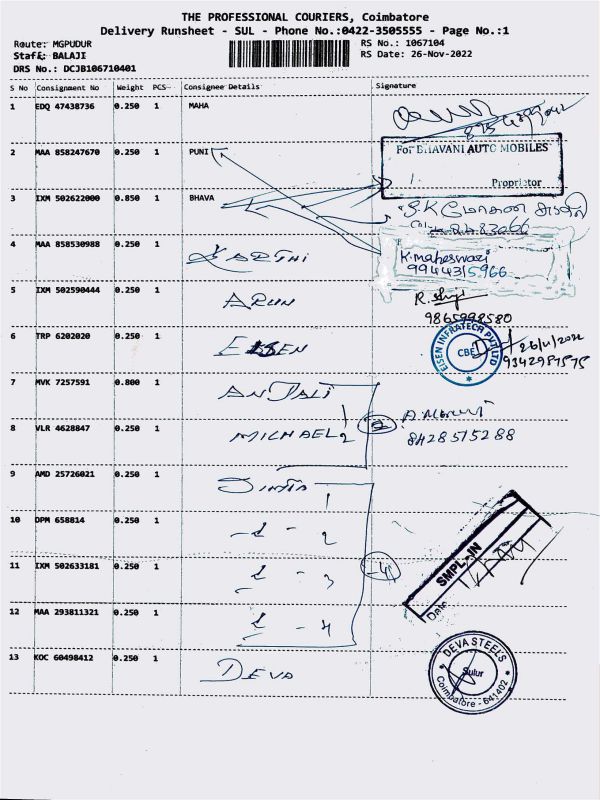 THE PROFESSIONAL COURIERS, Coimbatore
Delivery Runsheet - SUL - Phone No.:0422-3505555 - Page No.:1
Route: MGPUDUR
Staff: BALAJI
DRS No.: DCJB106710401
RS No.: 1067104
RS Date: 26-Nov-2022
S No Consignment No Weight PCS Consignee Details Signature
1 EDQ 47438736 0.250 1 MAHA
2 MAA 858247670 0.250 1 PUNI
For BHAVANI AUTO MOBILES
Proprietor
3 IXM 502622000 0.850 1 BHAVA
4 MAA 858530988 0.250 1 KARTHI
K.maheswari
9944315966
5 IXM 502590444 0.250 1 ARUN
9865998580
6 TRP 6202020 0.250 1 EISEN
EISEN INFRATECH PVT LTD
CBE
26/11/2022
9342987575
7 MVK 7257591 0.800 1 ANJALI 1
8 VLR 4628847 0.250 1 MICHAEL 2
2
8428515288
9 AMD 25726021 0.250 1 1
10 DPM 658814 0.250 1 - 2
11 IXM 502633181 0.250 1 - 3
4
SMPL AIN
Date
12 MAA 293811321 0.250 1 - 4
13 KOC 60498412 0.250 1 DEVA
DEVA STEELS
Sulur
Coimbatore - 641402